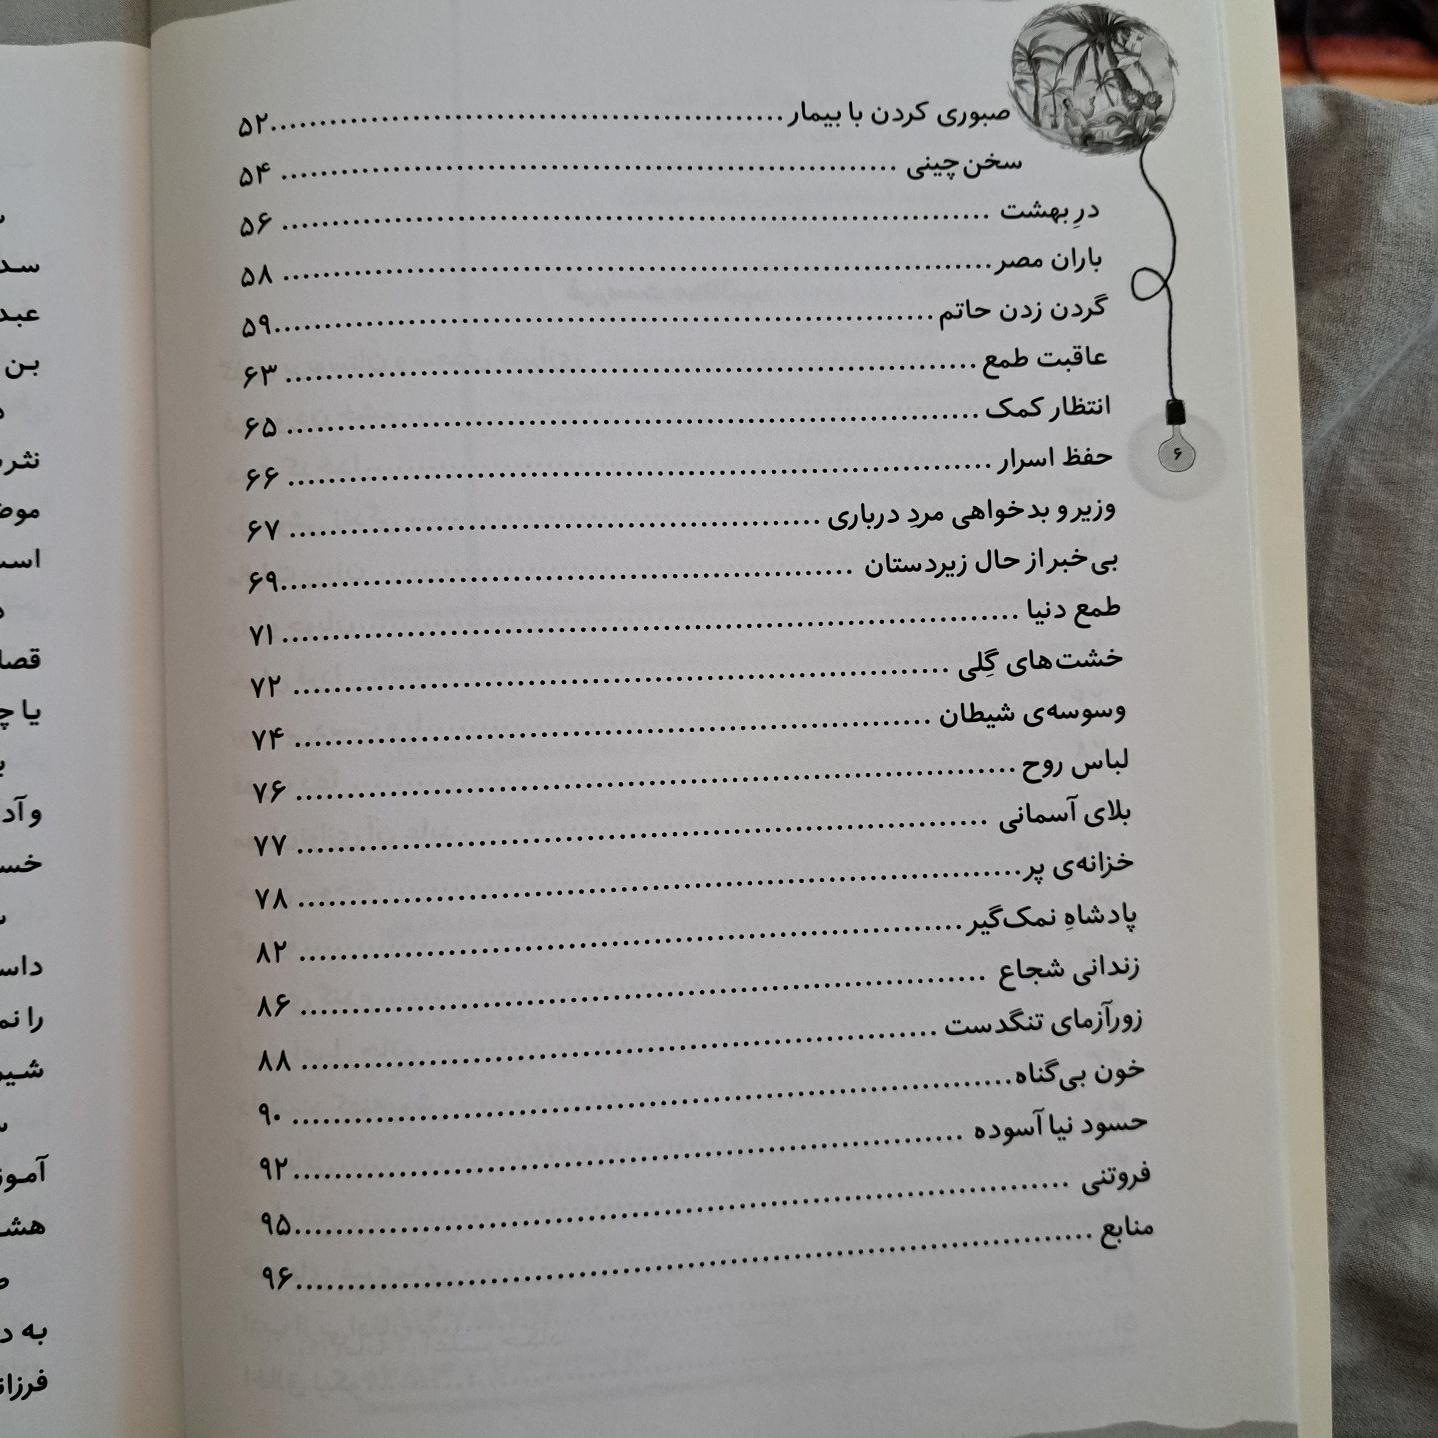 صبوری کردن با بیمار ........ ۵۲
سخن‌چینی ........ ۵۴
درِ بهشت ........ ۵۶
باران مصر ........ ۵۸
گردن زدن حاتم ........ ۵۹
عاقبت طمع ........ ۶۳
انتظار کمک ........ ۶۵
حفظ اسرار ........ ۶۶
وزیر و بدخواهی مردِ درباری ........ ۶۷
بی‌خبر از حال زیردستان ........ ۶۹
طمع دنیا ........ ۷۱
خشت‌های گِلی ........ ۷۲
وسوسه‌ی شیطان ........ ۷۴
لباس روح ........ ۷۶
بلای آسمانی ........ ۷۷
خزانه‌ی پر ........ ۷۸
پادشاهِ نمک‌گیر ........ ۸۲
زندانی شجاع ........ ۸۶
زورآزمای تنگدست ........ ۸۸
خون بی‌گناه ........ ۹۰
حسود نیاآسوده ........ ۹۲
فروتنی ........ ۹۵
منابع ........ ۹۶
۶
بن
را
به